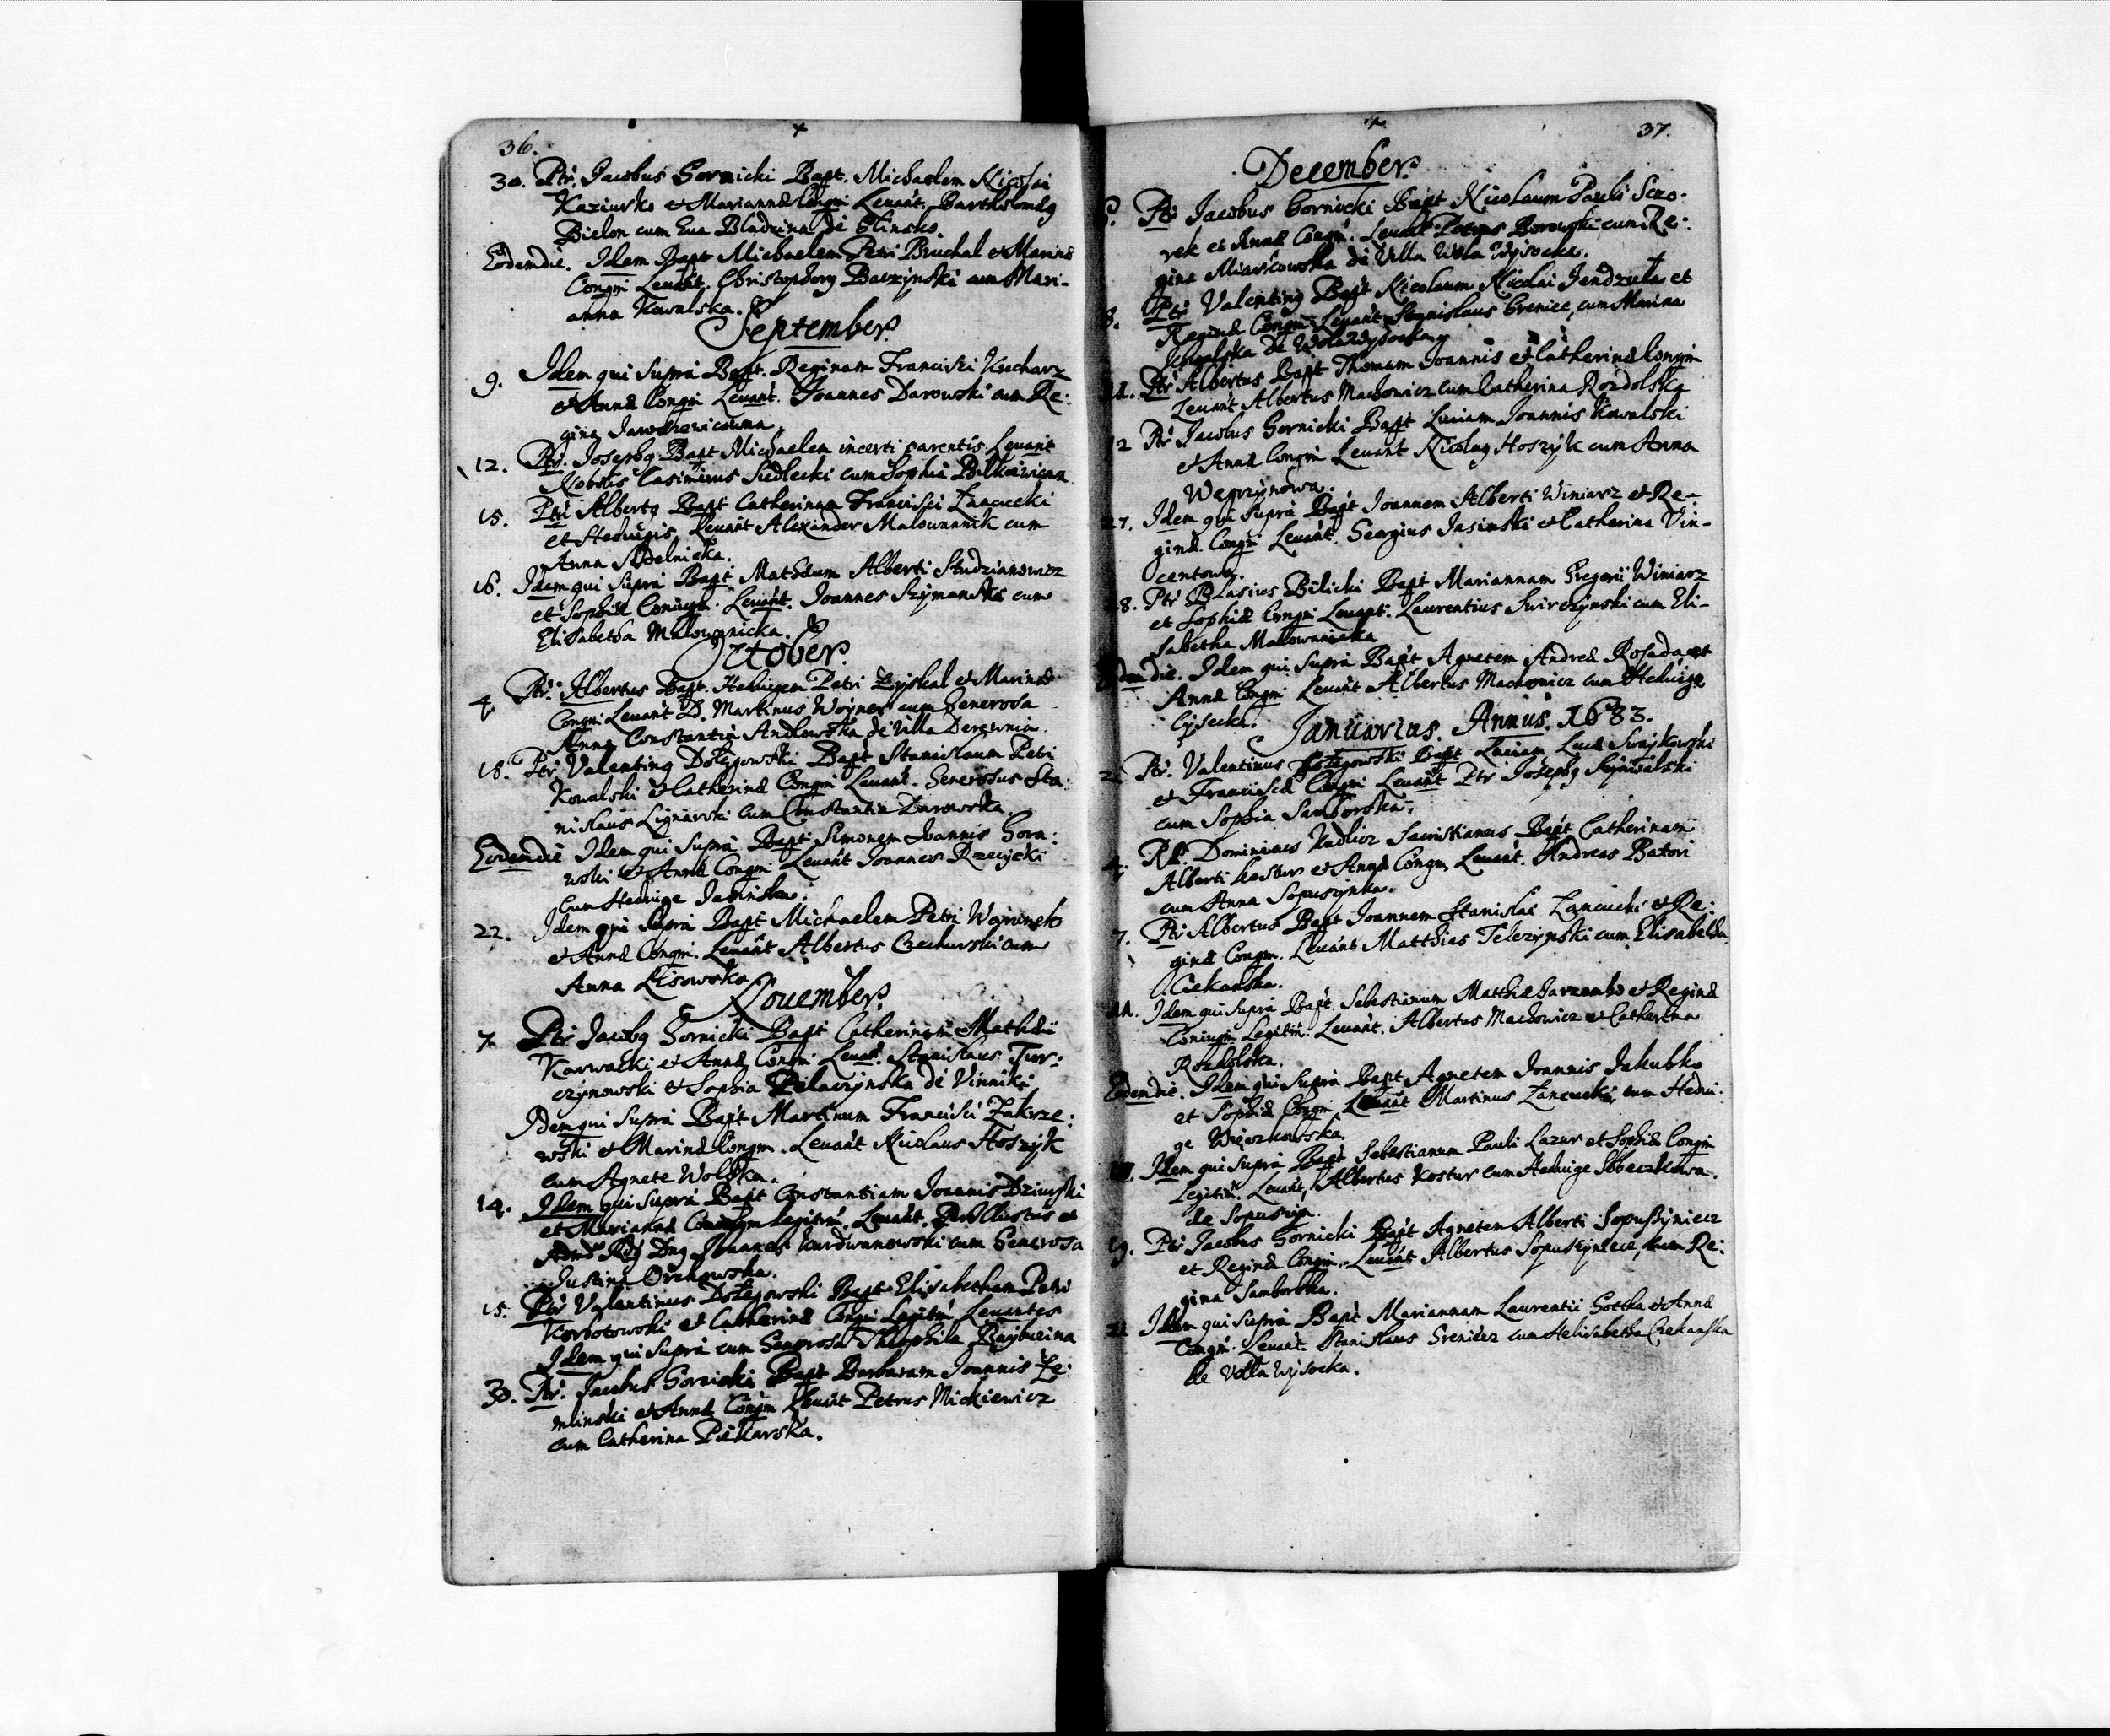 36.
30. Ptr. Jacobus Gornicki Bapt. Michaelem Nicolai
Kaziurko et Mariannæ Congm Levant. Bartholomeg
Bielon cum Eua Bladzina de Glinsko.
Eodem die. Idem Bapt Michaelem Petri Bruchal et Marinæ
Congm Levant. Christophorg Batzynski cum Mari-
anna Kowalska.
September.
9. Idem qui supra Bapt. Reginam Franciszi Kucharz
et Annæ Congm Levant. Joannes Darowski cum Re:
gina Jawdzewicowna.
12. Ptr. Josephg Bapt Michaelem incerti parentis Levant
Nobilis Casimirus Siedlecki cum Sophia
15. Ptr Albertg Bapt Catherinam Francisci Zancucki
et Heduigis Levant Alexander Malowannik cum
Anna
16. Idem qui supra Bapt Mathæum Alberti Studzianowicz
et Sophiæ Coniugm. Levant. Joannes Szymanski cum
Elisabetha Malowanicka.
October.
4. Ptr. Albertus Bapt. Heduigem Petri Zyskal et Marinæ
Congm Levant D. Martinus Woyner cum Generosa
Anna Constantia Andlowska de Villa Derewnia.
18. Ptr Valenting Dolęgowski Bapt Stanislaum Petri
Kowalski et Catherinæ Congm Levant. Generosus Sta:
nislaus Lignarski cum Constantia Darowska.
Eodem die Idem qui supra Bapt Simonem Joannis Gora:
wski et Annæ Congm Levant Joannes Rzeczycki
cum Heduige Jasinska.
22. Idem qui supra Bapt Michaelem Petri
et Annæ Congm. Levant Albertus Czechurski cum
Anna Lisowska
Nouember.
7. Ptr Jacobg Gornicki Bapt Catherinam Mathæi
Karwacki et Annæ Congm Levant. Stanislaus Tur:
czynowski et Sophia Pilaczynska de Vinniki
Idem qui supra Bapt Martinum Francisci Zakrze:
wski et Marinæ Congm. Levant Nicolaus Hoszyk
cum Agnete Wolska.
14. Idem qui supra Bapt Constantiam Joannis
et Mariannæ Coniugm legitim. Levant.
Dng Joannes Kurdwanowski cum Generosa
Justina Orchowska.
15. Ptr Valentinus Dolęgowski Bapt Elisabetham Petri
Korbotowski et Catherinæ Congm Legitm Levantes
Idem qui supra cum Generosa Theophila Raybicina
30. Ptr. Jacobus Gornicki Bapt Barbaram Joannis Ze:
mlinski et Annæ Congm Levant Petrus Mickiewicz
cum Catherina Piekarska.
37.
December.
Ptr Jacobus Gornicki Bapt Nicolaum Pauli Sczo-
rek et Annæ Congm. Levant Petrus Borowski cum Re:
gina de Villa Wola Wysocka.
8. Ptr Valenting Bapt Nicolaum Nicolai Jendzula et
Reginæ Congm Levant Stanislaus Greniec, cum Marina
de Wola Wysocka
11. Ptr Albertus Bapt Thomam Joannis et Catherinæ Congm
Levant Albertus Machowicz cum Catherina Rozdolska
12 Ptr Jacobus Gornicki Bapt Luciam Joannis Kowalski
et Annæ Congm Levant Nicolag Hoszyk cum Anna
Węgrzynowa.
27. Idem qui supra Bapt Joannem Alberti Winiarz et Re-
ginæ Congm Levant. Georgius Jasinski et Catherina Vin-
centowa.
28. Ptr Blasius Bilicki Bapt Mariannam Gregorii Winiarz
et Sophiæ Congm Levant. Laurentius Swirczynski cum Eli-
sabetha Malowanicka
Eodem die. Idem qui supra Bapt Agnetem Andreæ Rosada et
Annæ Congm Levant Albertus Machowicz cum Heduige
Cysecka.
Januarius. Annus. 1683.
2. Ptr. Valentinus Dolęgowski Bapt Luciam Lucæ Swiykowski
et Franciscæ Congm Levant Ptr Josephg
cum Sophia Samborska.
4. Rl. Dominicus Kudlicz Sacristianus Bapt Catherinam
Alberti Kostur et Annæ Congm Levant. Andreas Batori
cum Anna Sopuszynka.
7. Ptr Albertus Bapt Joannem Stanislai Zancucki et Re:
ginæ Congm. Levant Matthias Telezynski cum Elisabetha
Ciekanska.
11. Idem qui supra Bapt. Sebestianum Matthiæ Jarzembo et Reginæ
Coniugm Legitim. Levant. Albertus Machowicz et Catherina
Rozdolska.
Eodem die. Idem qui supra Bapt Agnetem Joannis Jakubko
et Sophiæ Congm Levant Martinus Zancucki, cum Hedui:
ge Więczkowska.
Idem qui supra Bapt Sebestianum Pauli Lazur et Sophiæ Congm
Legitim. Levant, Albertus Kostur cum Heduige Sobeczkowa
de Sopuszyn.
19. Ptr Jacobus Gornicki Bapt Agnetem Alberti Sopuszyniecz
et Reginæ Congm. Levant Albertus Sopuszyniec, cum Re:
gina Samborska.
21 Idem qui supra Bapt Mariannam Laurentii Gottka et Annæ
Congm. Levant. Stanislaus Greniecz cum Helisabetha Czekanska
de Volla Wysocka.